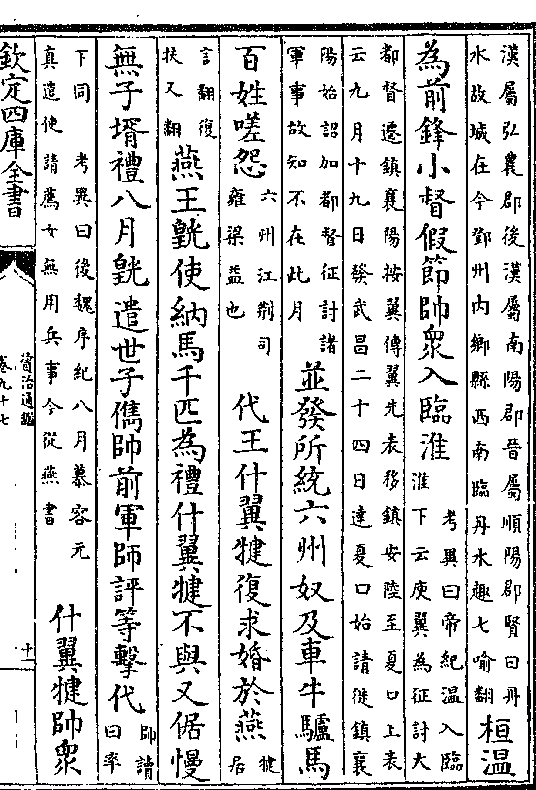 漢屬弘農郡後漢屬南陽郡晉屬順陽郡賢曰丹
水故城在今鄧州内鄉縣西南臨丹水趣七喻翻
桓温
為前鋒小督假節帥衆入臨淮
考異曰帝紀温入臨
淮下云庾翼為征討大
都督遷鎮襄陽按翼傳翼先表移鎮安陸至夏口上表
云九月十九日發武昌二十四日達夏口始請徙鎮襄
陽始詔加都督征討諸
軍事故知不在此月
並發所統六州奴及車牛驢馬
百姓嗟怨
六州江荆司
雍梁益也
代王什翼犍復求婚於燕
犍居
言翻復
扶又翻
燕王皝使納馬千匹為禮什翼犍不與又倨慢
無子壻禮八月皝遣世子儁帥前軍師評等擊代
帥讀
曰率
下同 考異曰後魏序紀八月慕容元
真遣使請薦女無用兵事今從燕書
什翼犍帥衆
欽定四庫全書
資治通鑑
卷九十七
十一